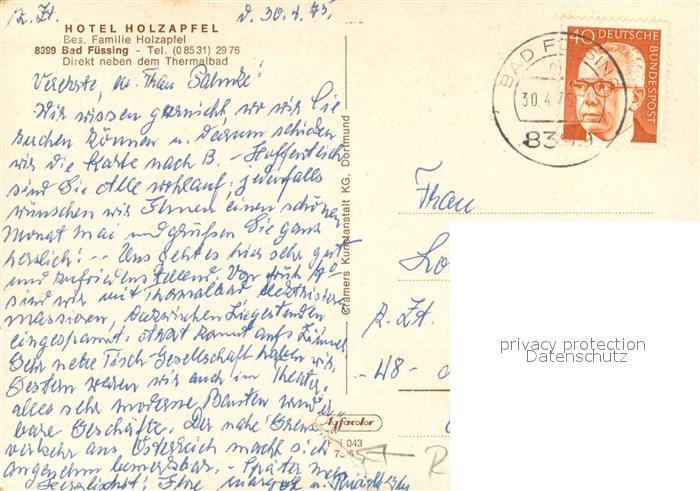 z. Zt. d. 30.4.75.
HOTEL HOLZAPFEL
Bes. Familie Holzapfel
8399 Bad Füssing - Tel. (0 85 31) 29 76
Direkt neben dem Thermalbad
Verehrte, lb. Frau
Wir wissen garnicht, wo wir Sie
suchen können u. darum schicken
wir die Karte nach B. - Hoffentlich
sind Sie Alle wohlauf; jedenfalls
wünschen wir Ihnen einen schönen
Monat Mai und grüßen Sie ganz
herzlich! - Uns geht es hier sehr gut
und zufriedenstellend. Von früh
sind wir mit Thermalbad
Massieren, dazwischen Liegestunden
eingespannt.
Sehr nette Tisch-Gesellschaft haben wir.
Gestern waren wir auch im Theater,
alles sehr moderne Bauten wunder
bare Geschäfte. Der nahe Grenz
verkehr aus Österreich macht sich
angenehm bemerkbar. - Später mehr
Herzlichst! Ihre Margot u.
Cramers Kunstanstalt KG, Dortmund
Agfacolor
043
BAD FÜSSING
30.4.75
40 DEUTSCHE BUNDESPOST
Frau
z. Zt.
-48-
R
privacy protection
Datenschutz